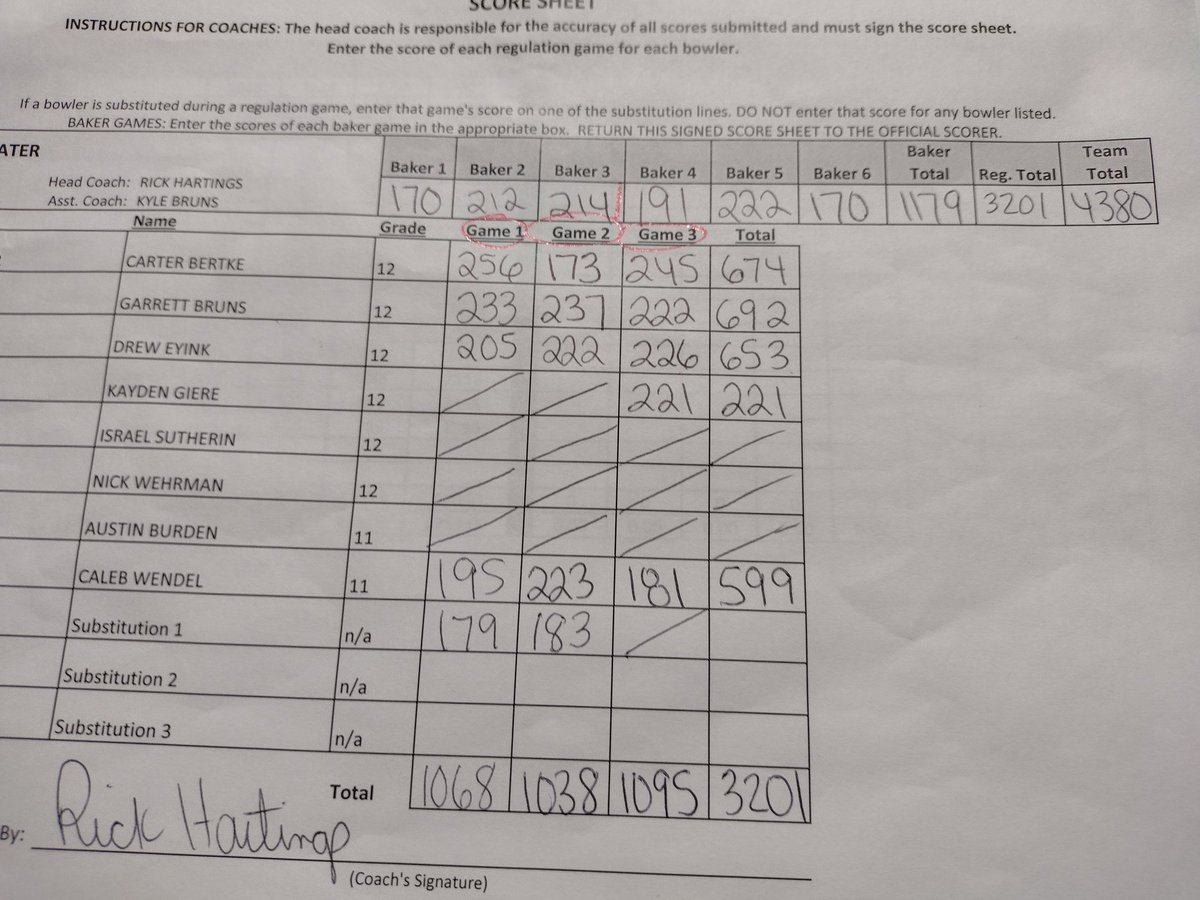 SCORE SHEET
INSTRUCTIONS FOR COACHES: The head coach is responsible for the accuracy of all scores submitted and must sign the score sheet.
Enter the score of each regulation game for each bowler.
If a bowler is substituted during a regulation game, enter that game's score on one of the substitution lines. DO NOT enter that score for any bowler listed.
BAKER GAMES: Enter the scores of each baker game in the appropriate box. RETURN THIS SIGNED SCORE SHEET TO THE OFFICIAL SCORER.
ATER
Baker 1 Baker 2 Baker 3 Baker 4 Baker 5 Baker 6 Baker Total Reg. Total Team Total
Head Coach: RICK HARTINGS
Asst. Coach: KYLE BRUNS
170 212 214 191 222 170 1179 3201 4380
Name Grade Game 1 Game 2 Game 3 Total
CARTER BERTKE 12 256 173 245 674
GARRETT BRUNS 12 233 237 222 692
DREW EYINK 12 205 222 226 653
KAYDEN GIERE 12 221 221
ISRAEL SUTHERIN 12
NICK WEHRMAN 12
AUSTIN BURDEN 11
CALEB WENDEL 11 195 223 181 599
Substitution 1 n/a 179 183
Substitution 2 n/a
Substitution 3 n/a
Total 1068 1038 1095 3201
By: Rick Hartings
(Coach's Signature)